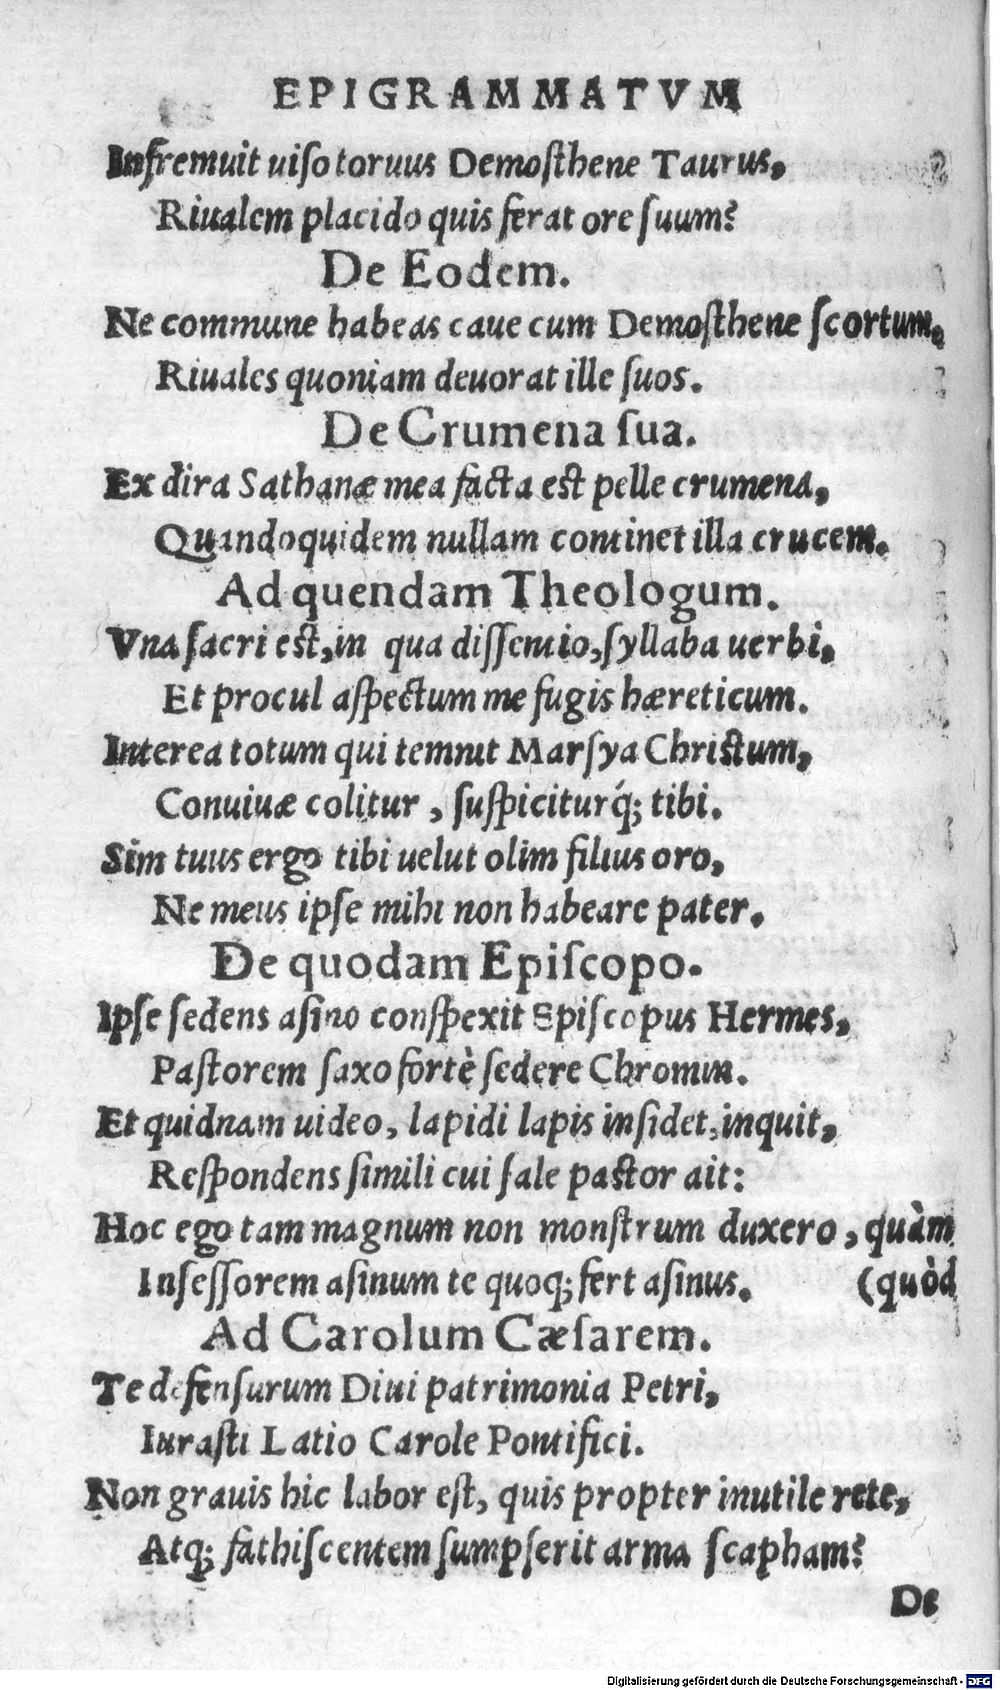 EPIGRAMMATVM
Infremuit uiso toruus Demosthene Taurus,
Riualem placido quis ferat ore suum?
De Eodem.
Ne commune habeas caue cum Demosthene scortum,
Riuales quoniam deuorat ille suos.
De Crumena sua.
Ex dira Sathanæ mea facta est pelle crumena,
Quandoquidem nullam continet illa crucem.
Ad quendam Theologum.
Vna sacri est, in qua dissentio, syllaba uerbi,
Et procul aspectum me fugis hæreticum.
Interea totum qui temnit Marsya Christum,
Conuiuæ colitur, suspiciturq́; tibi.
Sim tuus ergo tibi uelut olim filius oro,
Ne meus ipse mihi non habeare pater.
De quodam Episcopo.
Ipse sedens asino conspexit Episcopus Hermes,
Pastorem saxo fortè sedere Chromin.
Et quidnam uideo, lapidi lapis insidet, inquit,
Respondens simili cui sale pastor ait:
Hoc ego tam magnum non monstrum duxero, quàm
Insessorem asinum te quoq; fert asinus. (quòd
Ad Carolum Cæsarem.
Te defensurum Diui patrimonia Petri,
Iurasti Latio Carole Pontifici.
Non grauis hic labor est, quis propter inutile rete,
Atq; fathiscentem sumpserit arma scapham?
De
Digitalisierung gefördert durch die Deutsche Forschungsgemeinschaft - DFG